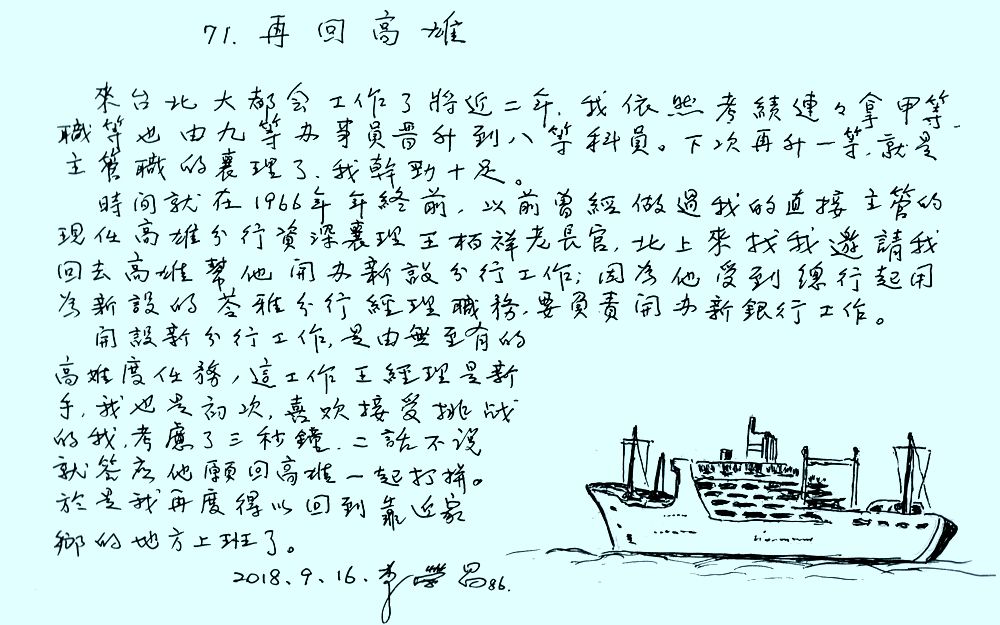 71. 再回高雄
來台北大都会工作了將近二年，我依然考績連々拿甲等，
職等也由九等办事員晋升到八等科員。下次再升一等，就是
主管職的襄理了，我幹勁十足。
時間就在1966年年終前，以前曾經做過我的直接主管的
現任高雄分行資深襄理王栢祥老長官，北上來找我邀請我
回去高雄幫他開办新設分行工作；因為他受到總行起用
為新設的苓雅分行經理職務，要負責開办新銀行工作。
開設新分行工作，是由無至有的
高难度任務，這工作王經理是新
手，我也是初次，喜欢接受挑战
的我，考慮了三秒鐘，二話不说
就答应他願回高雄一起打拚。
於是我再度得以回到靠近家
鄉的地方上班了。
2018.9.16.李學昌86.